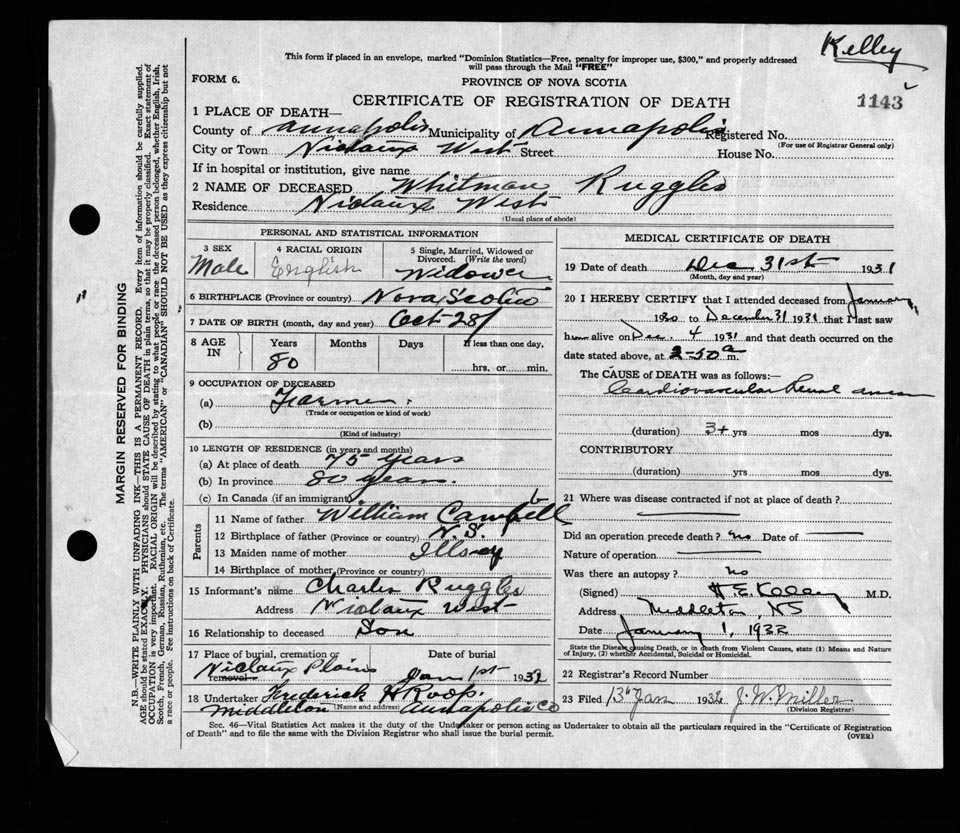 Kelley
This form if placed in an envelope, marked "Dominion Statistics—Free, penalty for improper use, $300," and properly addressed
will pass through the Mail "FREE"
FORM 6.
PROVINCE OF NOVA SCOTIA
CERTIFICATE OF REGISTRATION OF DEATH
1143
1 PLACE OF DEATH—
County of Annapolis Municipality of Annapolis Registered No.
(For use of Registrar General only)
City or Town Nictaux West Street House No.
If in hospital or institution, give name
2 NAME OF DECEASED Whitman Ruggles
Residence Nictaux West
(Usual place of abode)
PERSONAL AND STATISTICAL INFORMATION
3 SEX
Male
4 RACIAL ORIGIN
English
5 Single, Married, Widowed or
Divorced. (Write the word)
Widower
6 BIRTHPLACE (Province or country) Nova Scotia
7 DATE OF BIRTH (month, day and year) Oct 28/
8 AGE
IN
Years Months Days If less than one day,
80 hrs. or min.
9 OCCUPATION OF DECEASED
(a) Farmer
(Trade or occupation or kind of work)
(b)
(Kind of industry)
10 LENGTH OF RESIDENCE (in years and months)
(a) At place of death 75 years
(b) In province 80 years.
(c) In Canada (if an immigrant)
Parents
11 Name of father William Campbell
12 Birthplace of father (Province or country) N. S.
13 Maiden name of mother Illsley
14 Birthplace of mother (Province or country)
15 Informant's name Charles Ruggles
Address Nictaux West
16 Relationship to deceased Son
17 Place of burial, cremation or removal Date of burial
Nictaux Plains Jan 1st 1932
18 Undertaker Frederick H Roop.
Middleton (Name and address) Annapolis Co
MEDICAL CERTIFICATE OF DEATH
19 Date of death Dec 31st 1931
(Month, day and year)
20 I HEREBY CERTIFY that I attended deceased from January
1930 to December 31 1931 that I last saw
him alive on Dec. 4 1931 and that death occurred on the
date stated above, at 2-50 a m.
The CAUSE OF DEATH was as follows:—
Cardiovascular renal
(duration) 3+ yrs mos dys.
CONTRIBUTORY
(duration) yrs mos dys.
21 Where was disease contracted if not at place of death?
Did an operation precede death? no Date of
Nature of operation
Was there an autopsy? no
(Signed) H. E. Kelley M.D.
Address Middleton, NS
Date January 1, 1932
State the Disease causing Death, or in death from Violent Causes, state (1) Means and
Nature of Injury, (2) whether Accidental, Suicidal or Homicidal.
22 Registrar's Record Number
23 Filed 13th Jan 1932 J. W. Miller
(Division Registrar)
Sec. 46—Vital Statistics Act makes it the duty of the Undertaker or person acting as Undertaker to obtain all the particulars required in the "Certificate of Registration
of Death" and to file the same with the Division Registrar who shall issue the burial permit.
(OVER)
MARGIN RESERVED FOR BINDING
N.B.—WRITE PLAINLY WITH UNFADING INK—THIS IS A PERMANENT RECORD. Every item of information should be carefully supplied.
AGE should be stated EXACTLY. PHYSICIANS should STATE CAUSE OF DEATH in plain terms, so that it may be properly classified. Exact statement of
OCCUPATION is very important. RACIAL ORIGIN will be described by stating to what people or race the deceased person belonged, whether English, Irish,
Scotch, French, German, Russian, Ruthenian, etc. The terms "AMERICAN" or "CANADIAN" SHOULD NOT BE USED as they express citizenship but not
a race or people. See instructions on back of Certificate.